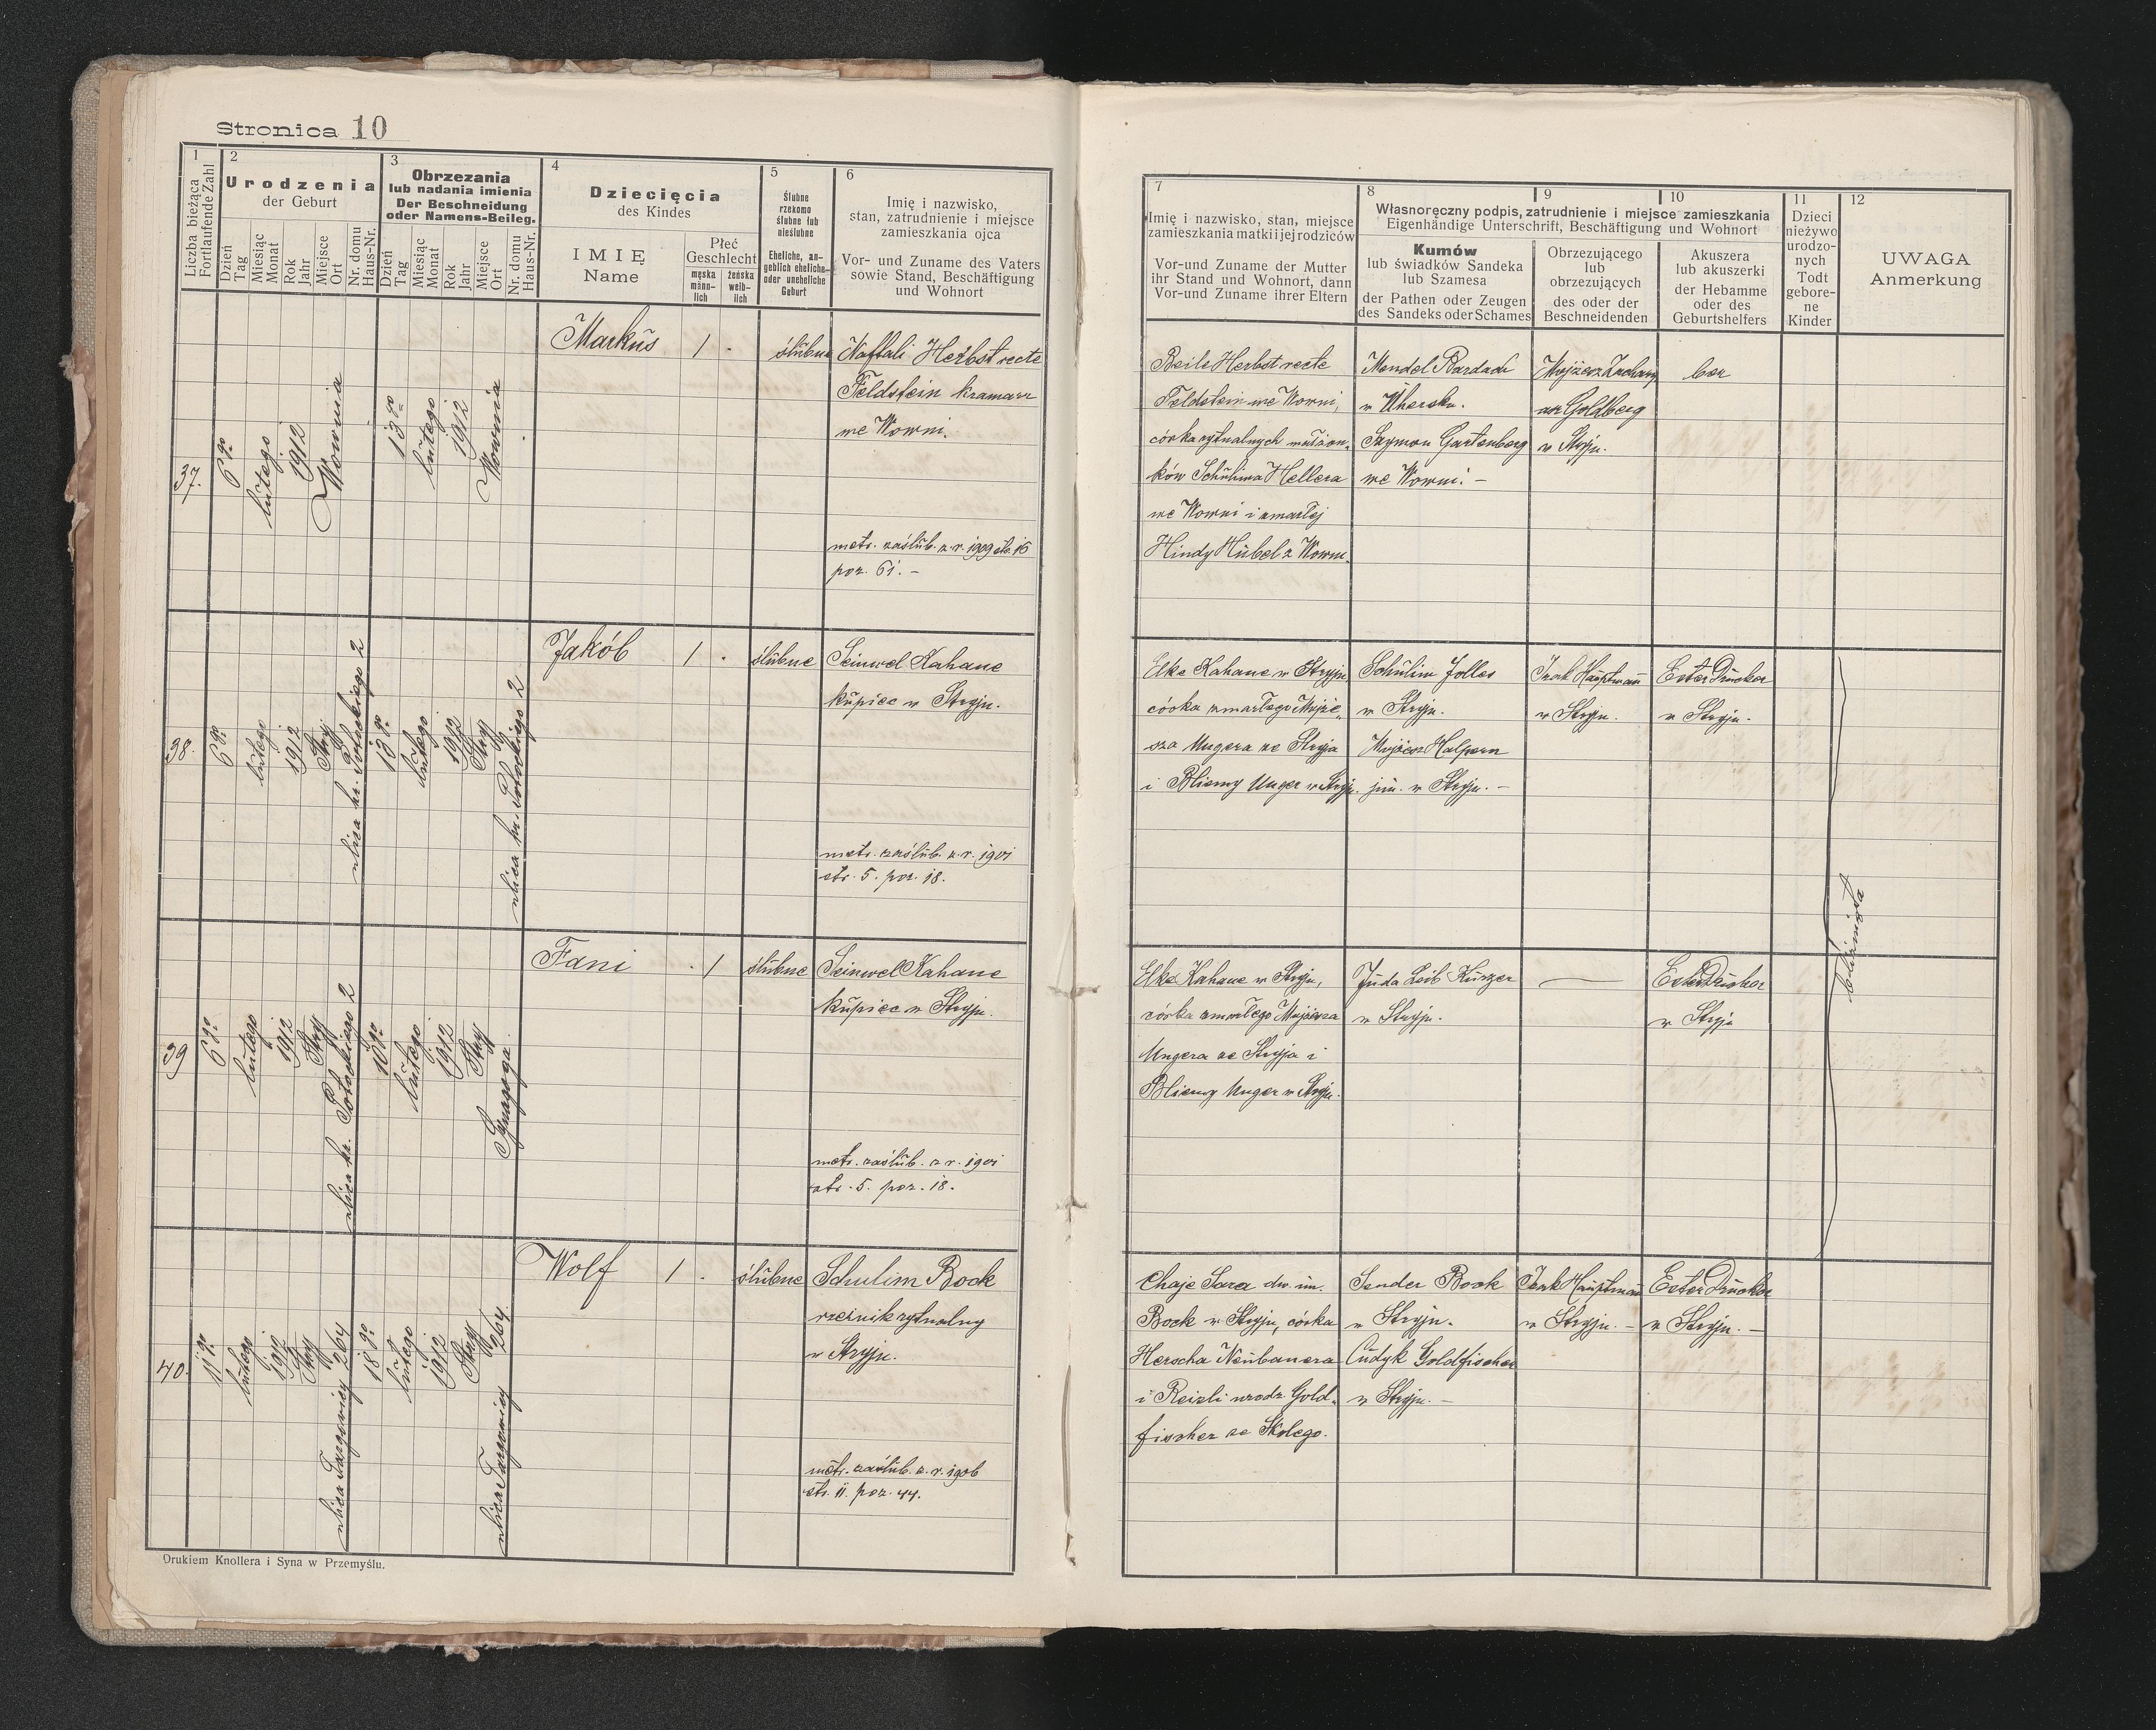 Stronica 10
1
Liczba bieżąca
Fortlaufende Zahl
2
Urodzenia
der Geburt
Dzień
Tag
Miesiąc
Monat
Rok
Jahr
Miejsce
Ort
Nr. domu
Haus-Nr.
3
Obrzezania
lub nadania imienia
Der Beschneidung
oder Namens-Beileg.
Dzień
Tag
Miesiąc
Monat
Rok
Jahr
Miejsce
Ort
Nr. domu
Haus-Nr.
4
Dziecięcia
des Kindes
IMIĘ
Name
Płeć
Geschlecht
męska
männ-
lich
żeńska
weib-
lich
5
Ślubne
rzekomo
ślubne lub
nieślubne
Eheliche, an-
geblich eheliche-
oder uneheliche
Geburt
6
Imię i nazwisko,
stan, zatrudnienie i miejsce
zamieszkania ojca
Vor- und Zuname des Vaters
sowie Stand, Beschäftigung
und Wohnort
7
Imię i nazwisko, stan, miejsce
zamieszkania matki i jej rodziców
Vor-und Zuname der Mutter
ihr Stand und Wohnort, dann
Vor-und Zuname ihrer Eltern
8
9
10
Własnoręczny podpis, zatrudnienie i miejsce zamieszkania
Eigenhändige Unterschrift, Beschäftigung und Wohnort
Kumów
lub świadków Sandeka
lub Szamesa
der Pathen oder Zeugen
des Sandeks oder Schames
Obrzezującego
lub
obrzezujących
des oder der
Beschneidenden
Akuszera
lub akuszerki
der Hebamme
oder des
Geburtshelfers
11
Dzieci
nieżywo
urodzo-
nych
Todt
gebore-
ne
Kinder
12
UWAGA
Anmerkung
37.
6go
lutego
1912
Wownia
13go
lutego
1912
Wownia
Markus
1
ślubne
Naftali Herbst recte
Feldstein kramarz
we Wowni.
metr. zaślub. z r. 1909 str. 16
poz. 61. -
Beile Herbst recte
Feldstein we Wowni,
córka rytualnych małżon-
ków Schulima Hellera
we Wowni i zmarłej
Hindy Hübel z Wowni.
Mendel Bardach
w Uhersku.
Szymon Gartenberg
we Wowni. -
Mojżesz
Goldberg
w Stryju.
bez
38.
6go
lutego
1912
Stryj
ulica hr. Potockiego 2
13go
lutego
1912
Stryj
ulica hr. Potockiego 2
Jakób
1
ślubne
Seinwel Kahane
kupiec w Stryju.
metr. zaślub. z r. 1901
str. 5. poz. 18.
Elke Kahane w Stryju
córka zmarłego Mojże-
sza Ungera ze Stryja
i Bliemy Unger w Stryju.
Schulim Jolles
w Stryju.
Mojżesz Halpern
jun. w Stryju. -
Izak Hauptmann
w Stryju.
Ester Drucker
w Stryju.
bliźnięta
39
6go
lutego
1912
Stryj
ulica hr. Potockiego 2
10go
lutego
1912
Stryj
Synagoga.
Fani
1
ślubne
Seinwel Kahane
kupiec w Stryju.
metr. zaślub. z r. 1901
str. 5. poz. 18.
Elke Kahane w Stryju,
córka zmarłego Mojżesza
Ungera ze Stryja i
Bliemy Unger w Stryju.
Juda Leib Kurzer
w Stryju.
Ester Drucker
w Stryju
40.
11go
lutego
1912
Stryj
ulica Targowicy 264
18go
lutego
1912
Stryj
ulica Targowicy 264.
Wolf
1
ślubne
Schulim Bock
rzeźnik rytualny
w Stryju.
metr. zaślub. z r. 1906
str. 11. poz. 44.
Chaje Sara dw. im.
Bock w Stryju, córka
Herscha Neubauera
i Reizli urodz. Gold-
fischer ze Skolego.
Sender Bock
w Stryju.
Cudyk Goldfischer
w Stryju. -
Izak Hauptmann
w Stryju. -
Ester Drucker
w Stryju. -
Drukiem Knollera i Syna w Przemyślu.